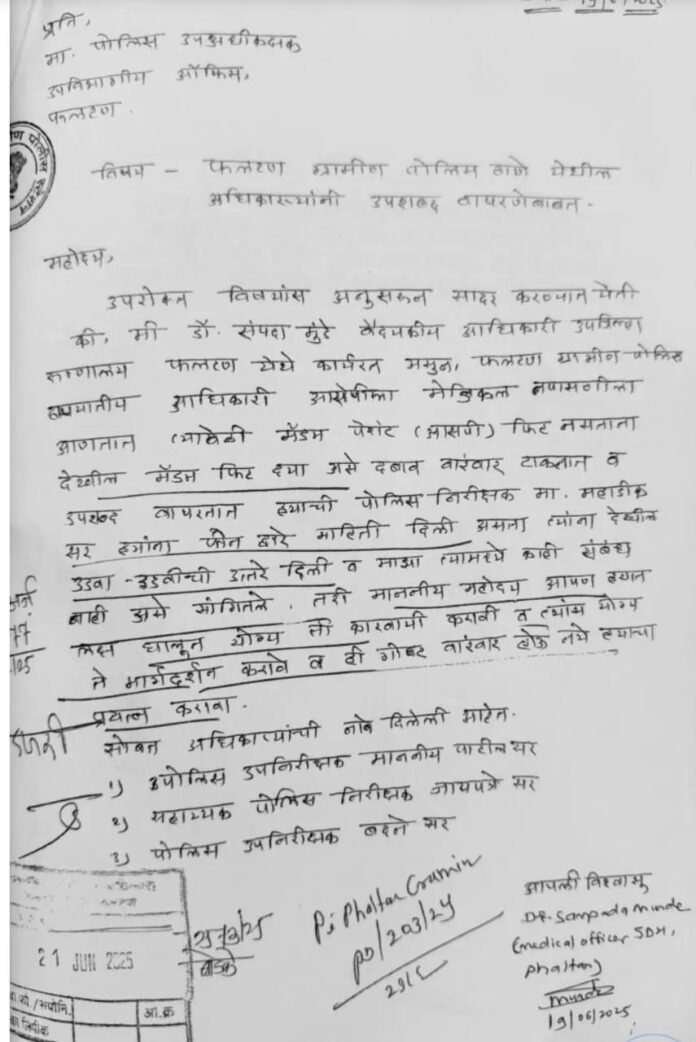 19/06/2025
प्रति,
मा. पोलिस उपअधीक्षक
उपविभागीय ऑफिस,
फलटण.
विषय - फलटण ग्रामीण पोलिस ठाणे येथील
अधिकाऱ्यांनी उपशब्द वापरणेबाबत.
महोदय,
उपरोक्त विषयांस अनुसरून सादर करण्यात येती
की, मी डॉ. संपदा मुंडे वैद्यकीय अधिकारी उपजिल्हा
रुग्णालय फलटण येथे कार्यरत असुन, फलटण ग्रामीण पोलिस
आधिकारी आरोपीला मेडिकल तपासणीला
आणतात त्यावेळी मॅडम पेशंट (आरोपी) फिट नसताना
देखील मॅडम फिट द्या असे दबाव वारंवार टाकतात व
उपशब्द वापरतात ह्याची पोलिस निरीक्षक मा. महाडीक
सर ह्यांना फोन द्वारे माहिती दिली असता त्यांना देखील
उडवा-उडवीची उत्तरे दिली व माझा त्यामध्ये काही संबंध
नाही असे सांगितले. तरी माननीय महोदय आपण ह्यात
लक्ष घालून योग्य ती कारवायी करावी व त्यांस योग्य
ते मार्गदर्शन करावे व ही गोष्ट वारंवार होऊ नये ह्याचा
प्रयत्न करावा.
सोबत अधिकाऱ्यांची नावे दिलेली आहेत.
1) पोलिस उपनिरीक्षक माननीय पाटील सर
2) सहाय्यक पोलिस निरीक्षक जायपत्रे सर
3) पोलिस उपनिरीक्षक बदने सर
21 JUN 2025
आ.क्र
Pi Phaltan Gramin
आपली विश्वासू
DR. Sampada Munde
(medical officer SDH,
phaltan)
munde
19/06/2025